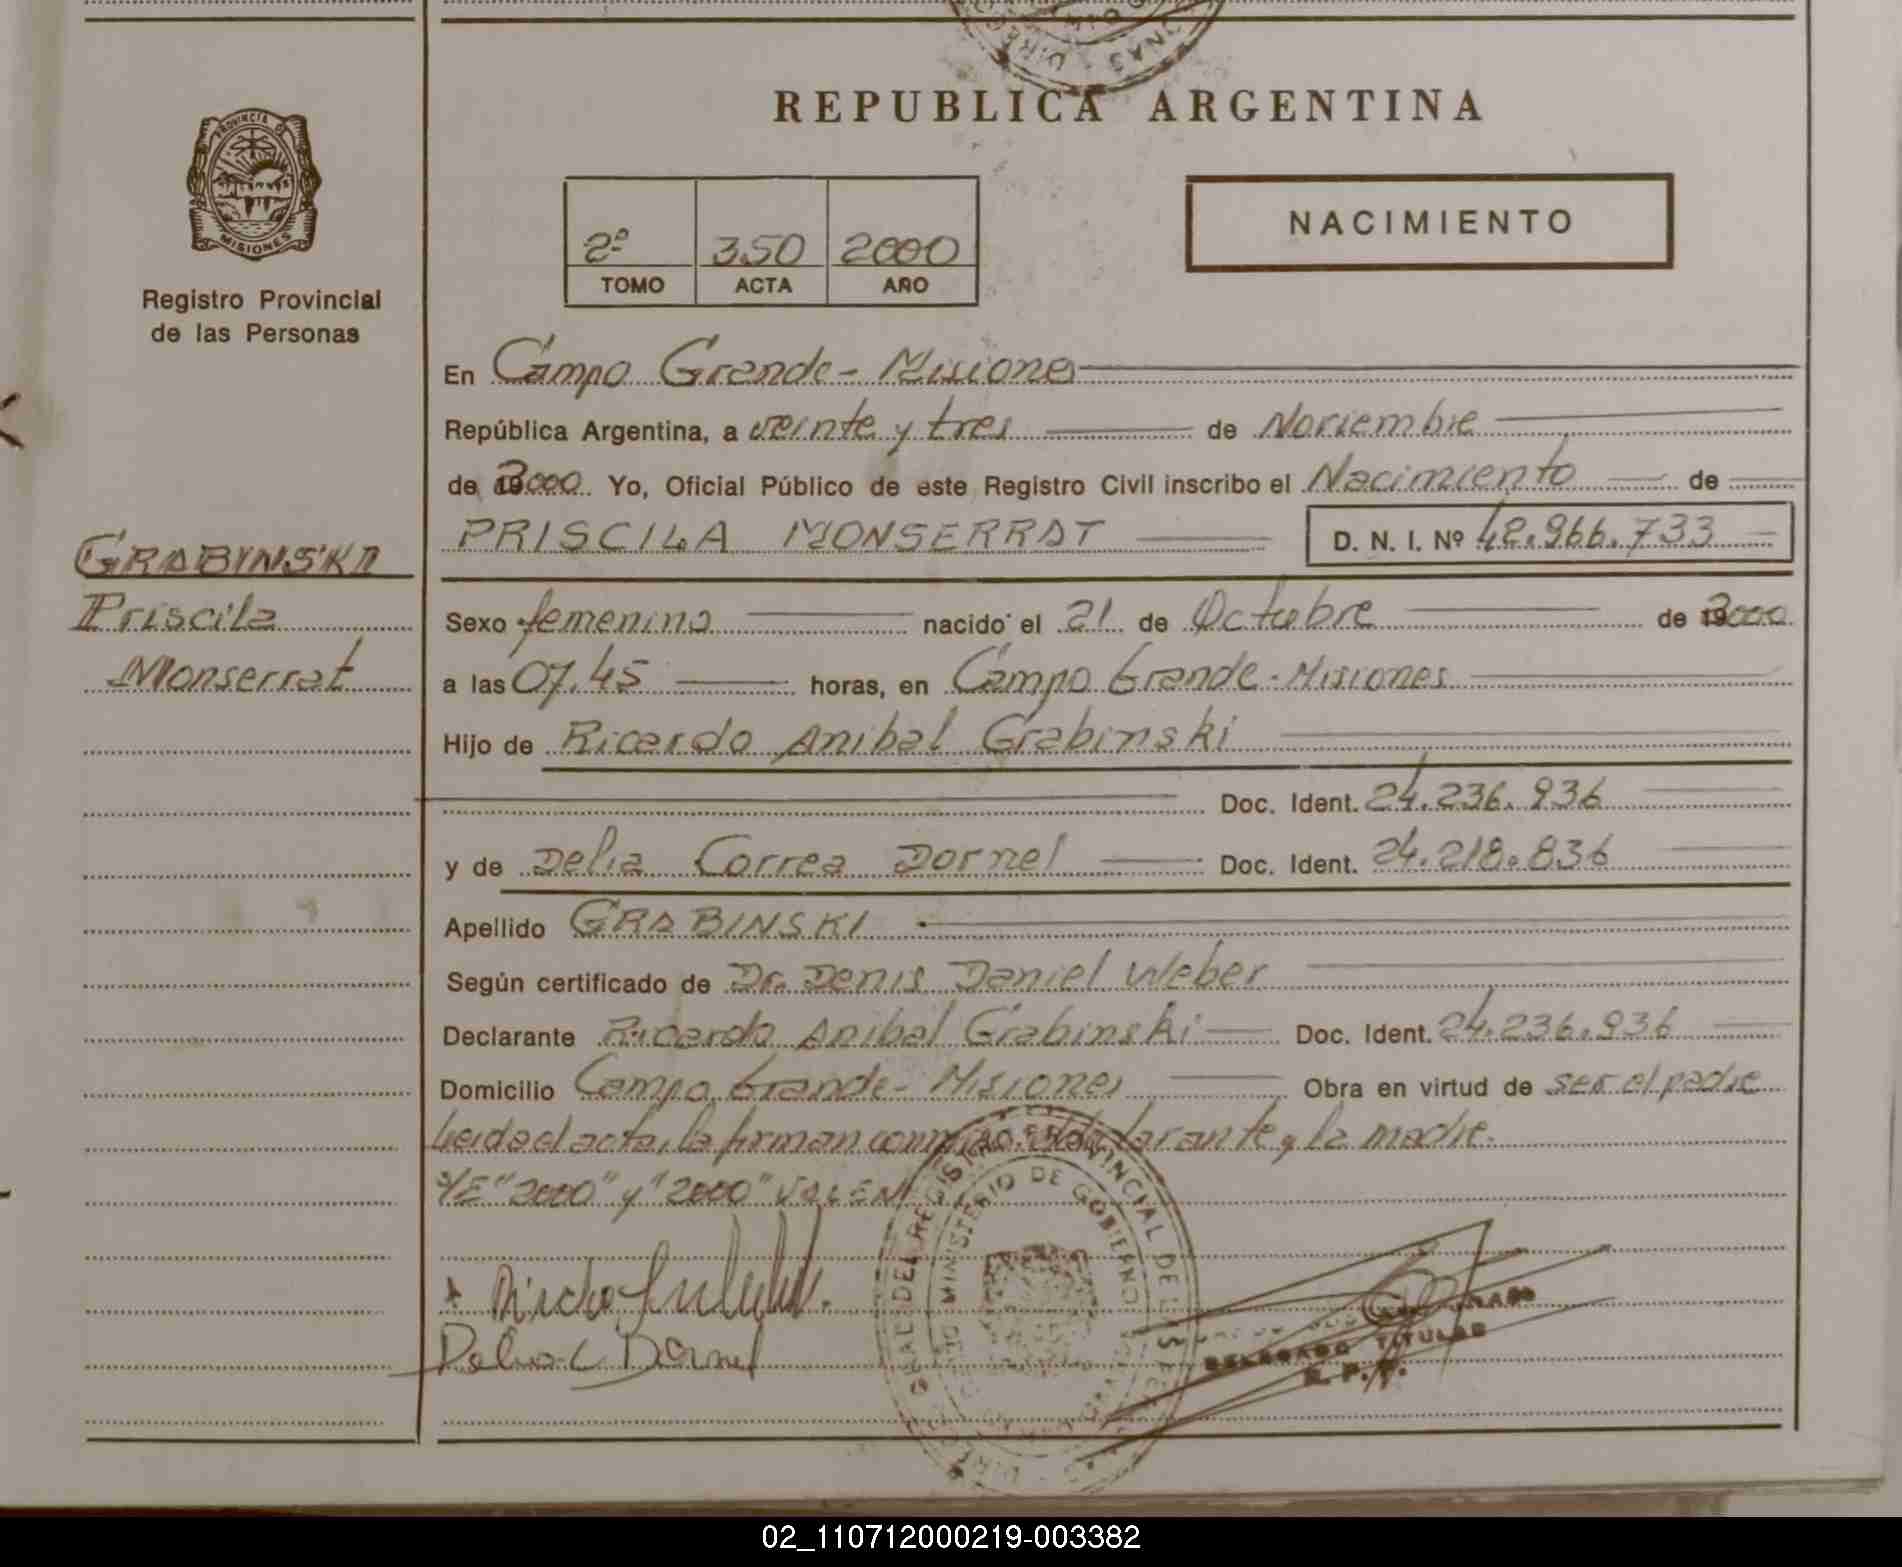 REPUBLICA ARGENTINA
PROVINCIA DE
MISIONES
Registro Provincial
de las Personas
NACIMIENTO
2º 350 2000
TOMO ACTA AÑO
En Campo Grande - Misiones
República Argentina, a veinte y tres de Noviembre
de 2000. Yo, Oficial Público de este Registro Civil inscribo el Nacimiento de
PRISCILA MONSERRAT D. N. I. Nº 42.966.733
GRABINSKI
Priscila
Monserrat
Sexo femenino nacido el 21 de Octubre de 2000
a las 07.45 horas, en Campo Grande - Misiones
Hijo de Ricardo Anibal Grabinski
Doc. Ident. 24.236.936
y de Delia Correa Dornel Doc. Ident. 24.218.836
Apellido GRABINSKI
Según certificado de Dr. Denis Daniel Weber
Declarante Ricardo Anibal Grabinski Doc. Ident. 24.236.936
Domicilio Campo Grande - Misiones Obra en virtud de ser el padre
Leida el acta, la firman conmigo el declarante y la madre.
S/E "2000" y "2000" VALEN
REGISTRO PROVINCIAL DE LAS
MINISTERIO DE GOBIERNO
Delia C Dornel
DELEGADO TITULAR
R. P. P.
02_110712000219-003382